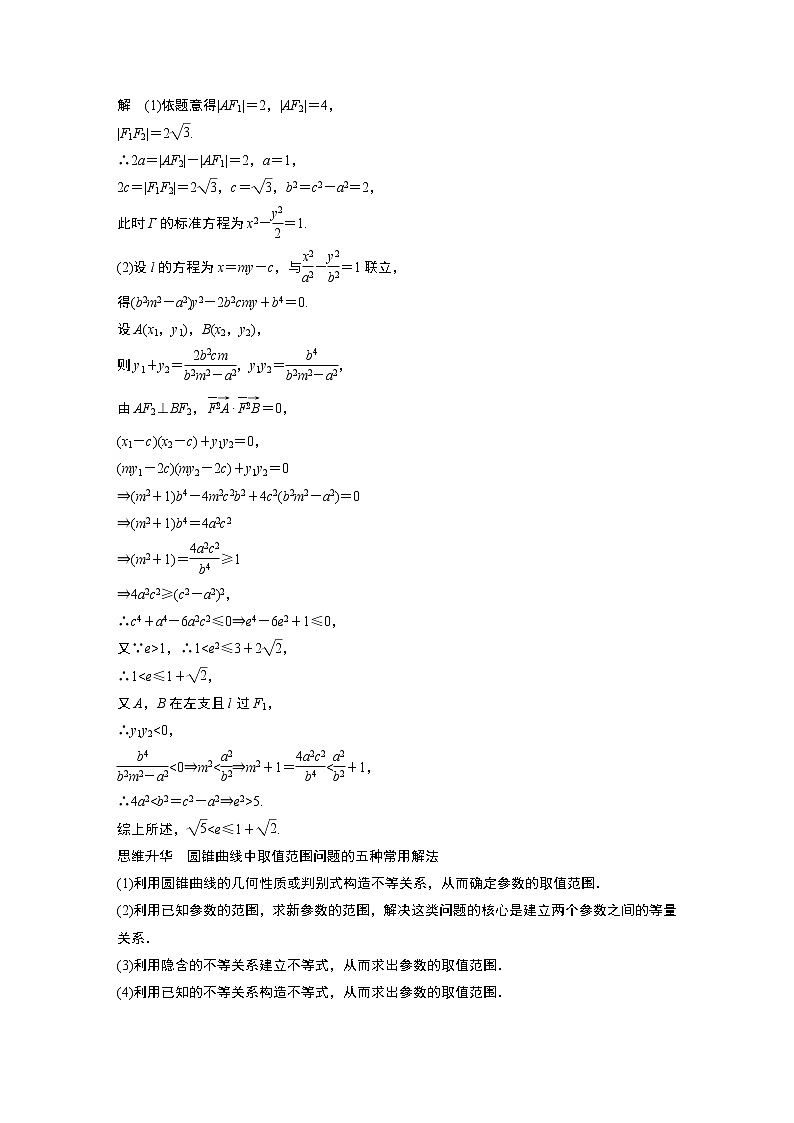 解　(1)依题意得|AF₁|＝2，|AF₂|＝4，
|F₁F₂|＝2√3.
∴2a＝|AF₂|－|AF₁|＝2，a＝1，
2c＝|F₁F₂|＝2√3，c＝√3，b²＝c²－a²＝2，
此时Γ的标准方程为x²－y²/2＝1.
(2)设l的方程为x＝my－c，与x²/a²－y²/b²＝1联立，
得(b²m²－a²)y²－2b²cmy＋b⁴＝0.
设A(x₁，y₁)，B(x₂，y₂)，
则y₁＋y₂＝2b²cm/(b²m²－a²)，y₁y₂＝b⁴/(b²m²－a²)，
由AF₂⊥BF₂，F₂A→·F₂B→＝0，
(x₁－c)(x₂－c)＋y₁y₂＝0，
(my₁－2c)(my₂－2c)＋y₁y₂＝0
⇒(m²＋1)b⁴－4m²c²b²＋4c²(b²m²－a²)＝0
⇒(m²＋1)b⁴＝4a²c²
⇒(m²＋1)＝4a²c²/b⁴≥1
⇒4a²c²≥(c²－a²)²，
∴c⁴＋a⁴－6a²c²≤0⇒e⁴－6e²＋1≤0，
又∵e>1，∴1<e²≤3＋2√2，
∴1<e≤1＋√2，
又A，B在左支且l过F₁，
∴y₁y₂<0，
b⁴/(b²m²－a²)<0⇒m²<a²/b²⇒m²＋1＝4a²c²/b⁴<a²/b²＋1，
∴4a²<b²＝c²－a²⇒e²>5.
综上所述，√5<e≤1＋√2.
思维升华　圆锥曲线中取值范围问题的五种常用解法
(1)利用圆锥曲线的几何性质或判别式构造不等关系，从而确定参数的取值范围．
(2)利用已知参数的范围，求新参数的范围，解决这类问题的核心是建立两个参数之间的等量
关系．
(3)利用隐含的不等关系建立不等式，从而求出参数的取值范围．
(4)利用已知的不等关系构造不等式，从而求出参数的取值范围．